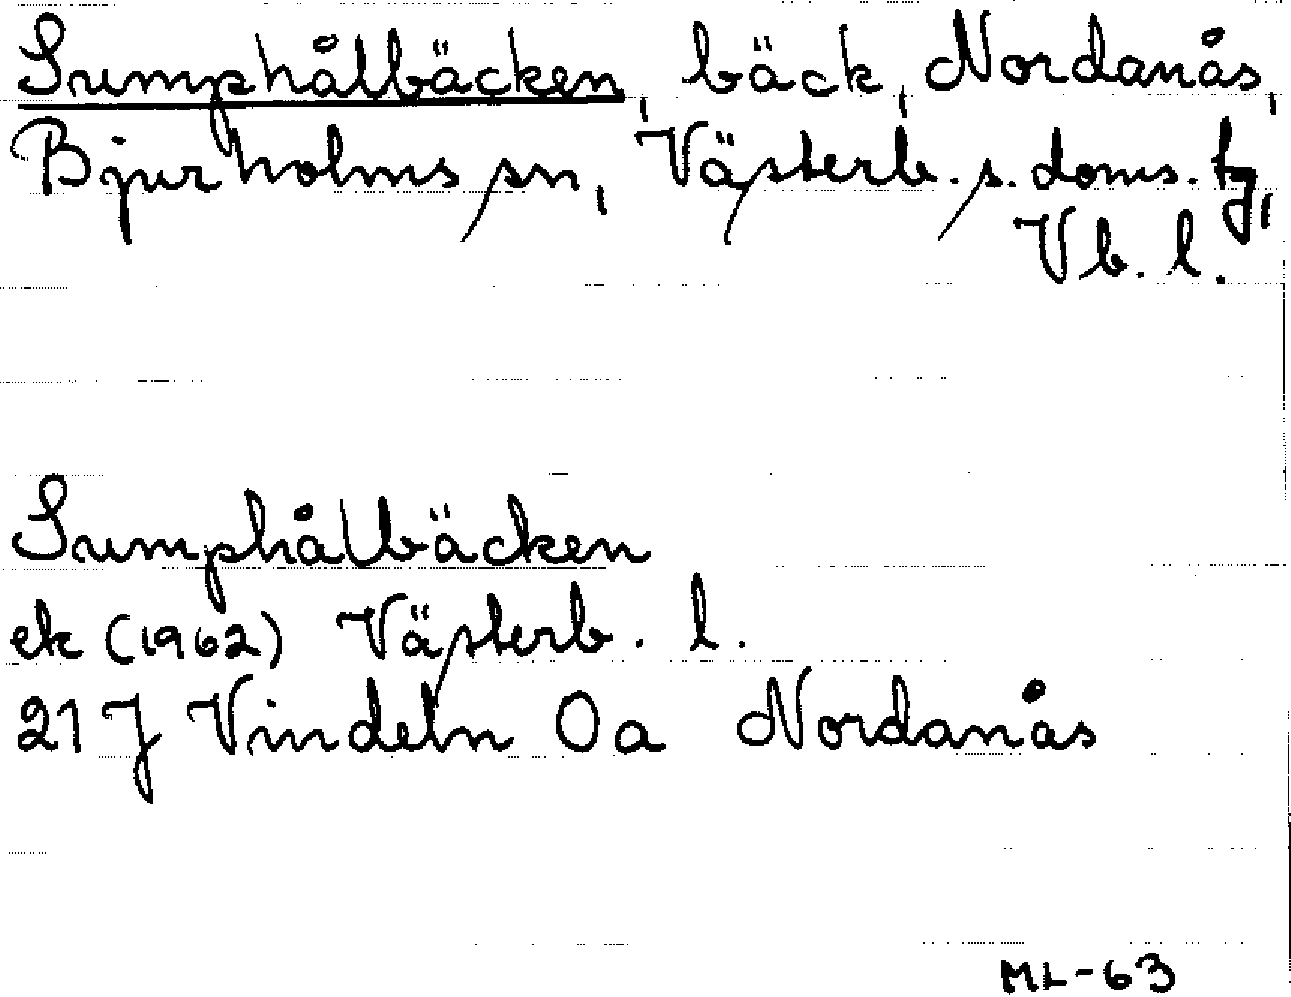 Sumphålbäcken, bäck, Nordanås,
Bjurholms sn, Västerb. s. doms. fg,
Vb. l.
Sumphålbäcken
ek (1962) Västerb. l.
21 J Vindeln 0a Nordanås
ML-63